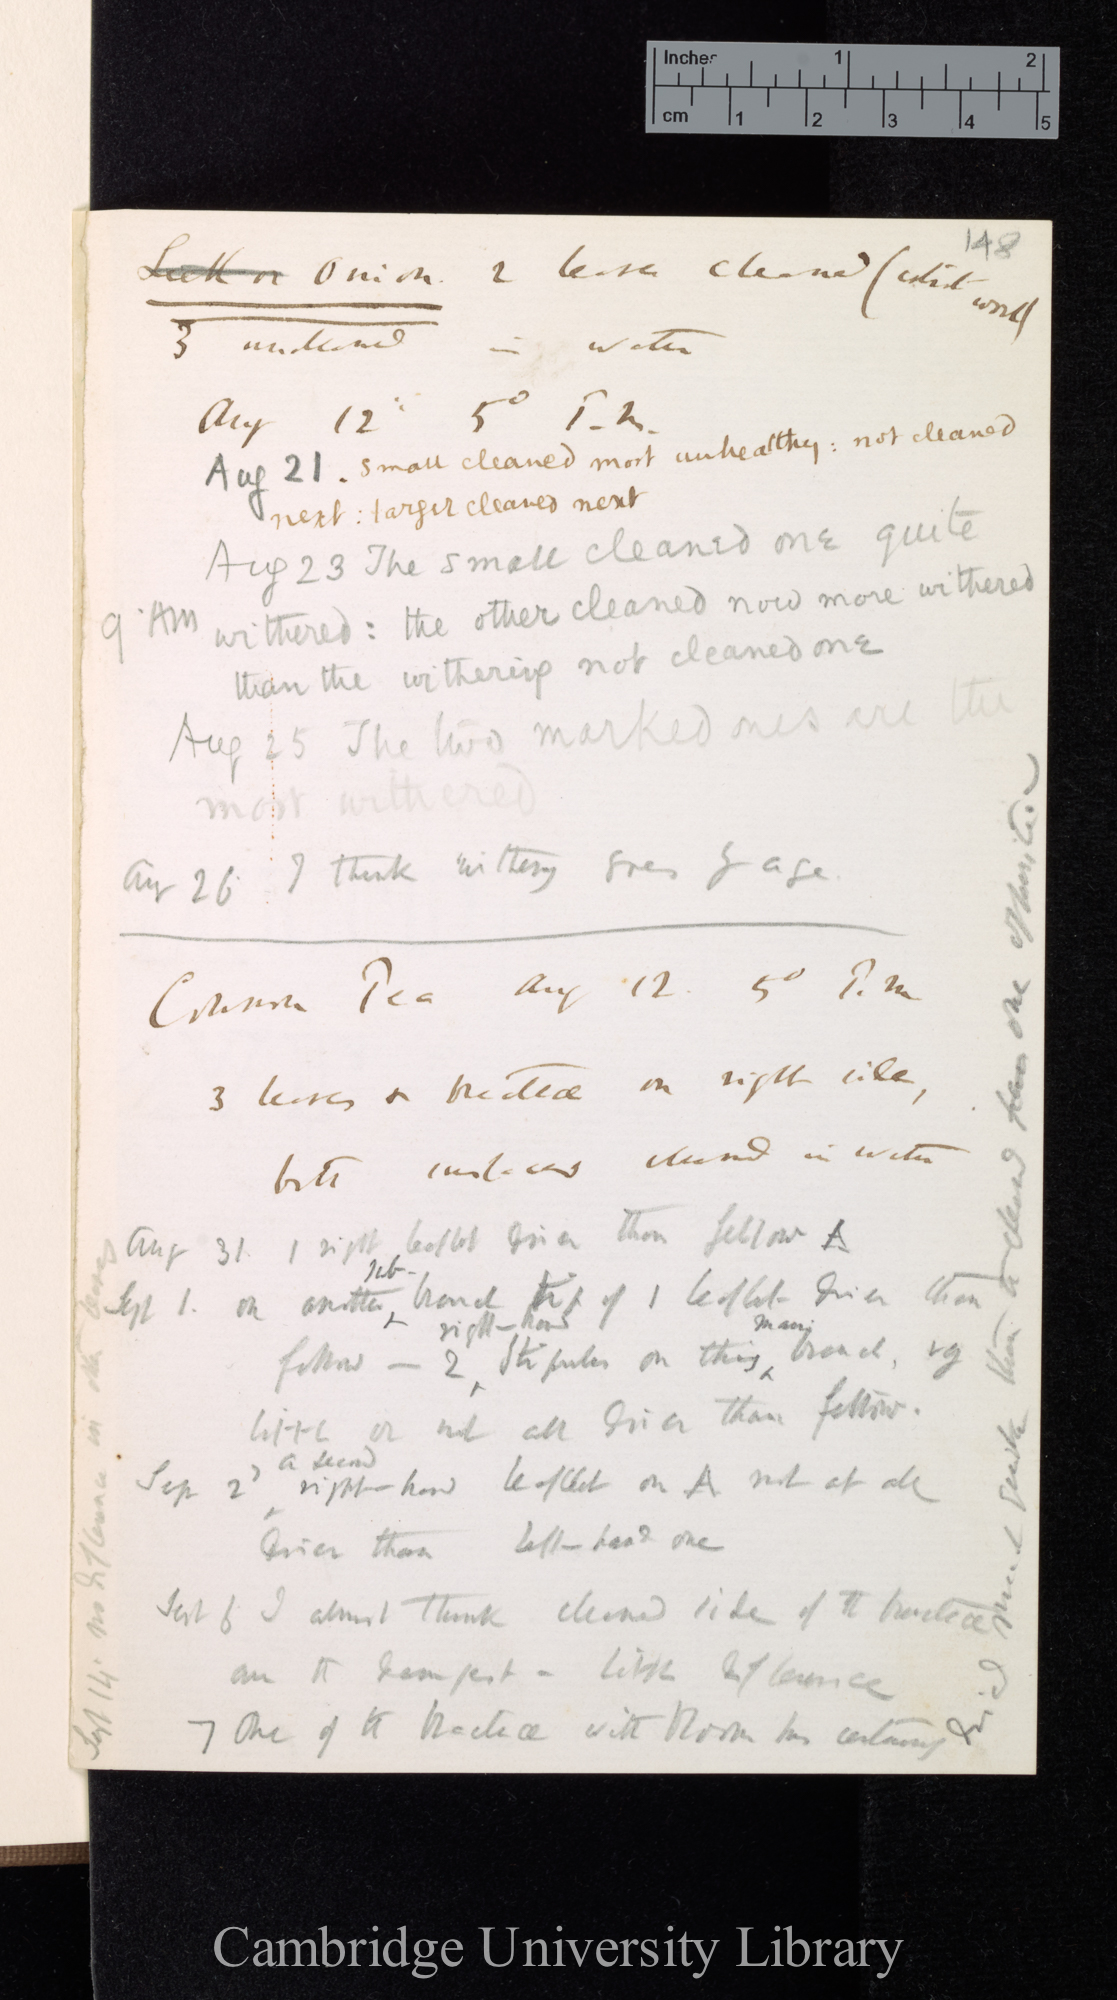 Inches 1 2
cm 1 2 3 4 5
148
Leek or Onion. 2 leaves cleaned (with wool)
3 uncleaned in water
Aug 12' 5° P.M.
Aug 21. Small cleaned most unhealthy: not cleaned
next: larger cleaned next
Aug 23 The small cleaned one quite
9 AM withered: the other cleaned now more withered
than the withering not cleaned one
Aug 25 The two marked ones are the
most withered
Aug 26 I think withering goes by age.
Common Pea Aug 12. 5° P.m
3 leaves & bracteæ on right side,
both surfaces cleaned in water
Aug 31. 1 right leaflet drier than fellow A
Sept 1. on another sub- branch tip of 1 leaflet drier than
fellow — 2 right-hand Stipules on this main branch, vy
little or not all drier than fellow.
Sep 2' a second right-hand leaflet on A not at all
drier than left-hand one
Sept 6 I almost think cleaned side of th bracteæ
are th dampest - little difference
7 One of th bracteæ with bloom has certainly
dried much quicker than th cleaned one opposite
Sept 14' no difference in other leaves
Cambridge University Library